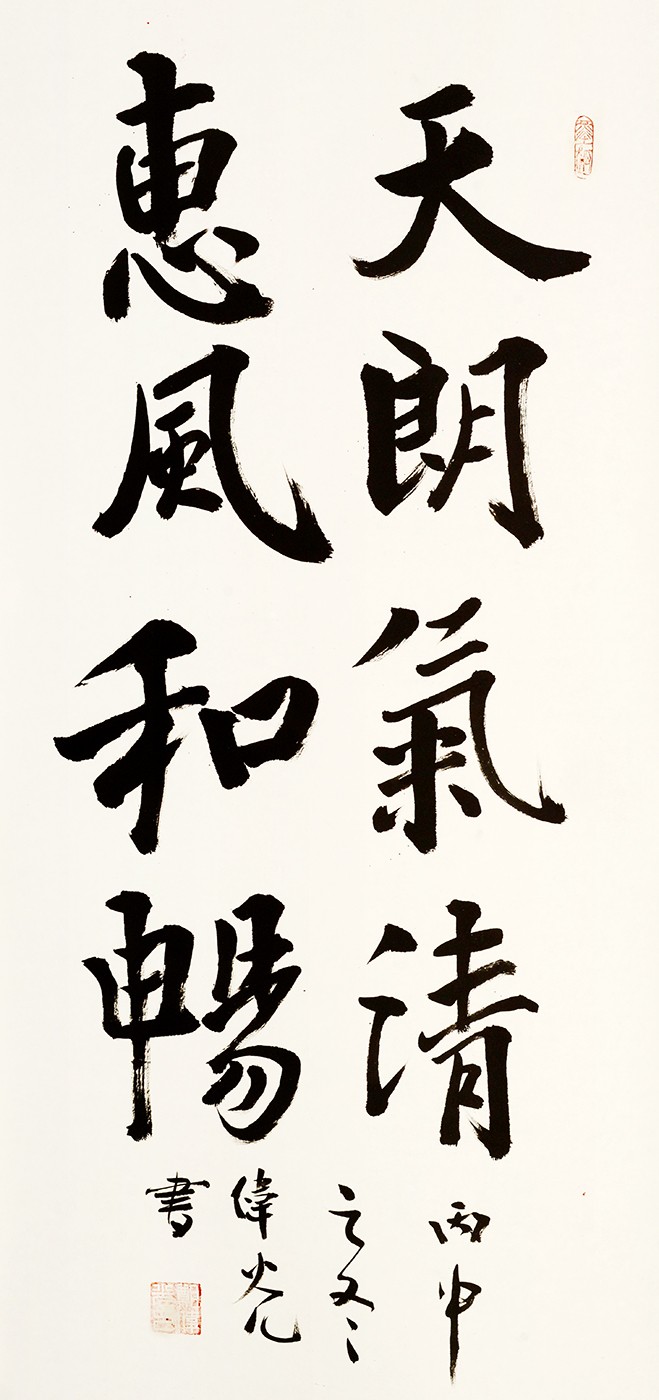 天朗氣清
惠風和暢
丙申
之冬
偉光
書